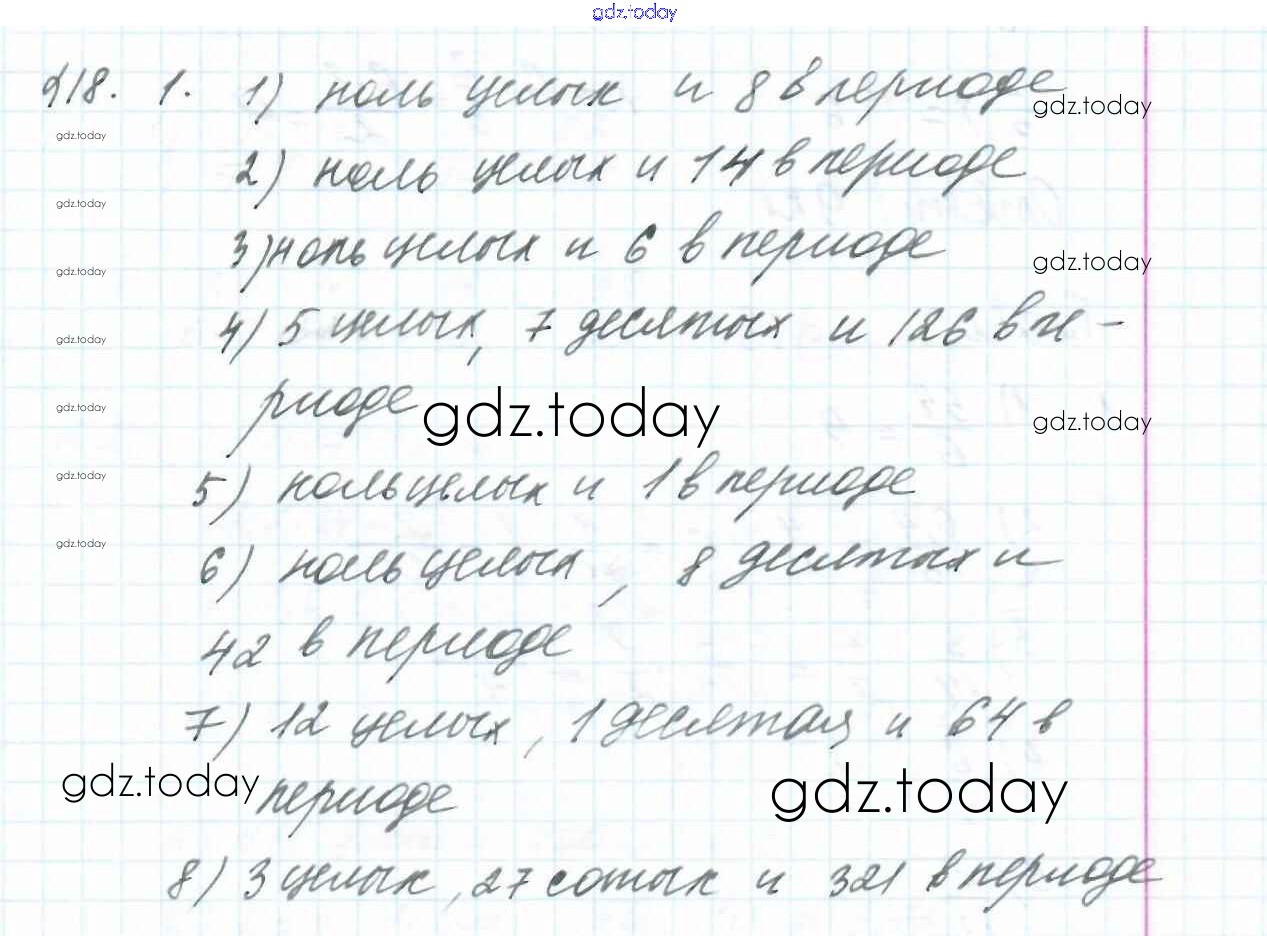 gdz.today
§18. 1. 1) ноль целых и 8 в периоде
gdz.today
gdz.today
2) ноль целых и 14 в периоде
gdz.today
3) ноль целых и 6 в периоде
gdz.today
gdz.today
4) 5 целых, 7 десятых и 126 в пе-
gdz.today
риоде
gdz.today
gdz.today
gdz.today
5) ноль целых и 1 в периоде
gdz.today
6) ноль целых, 8 десятых и
gdz.today
42 в периоде
7) 12 целых, 1 десятая и 64 в
периоде
gdz.today
gdz.today
8) 3 целых, 27 сотых и 321 в периоде